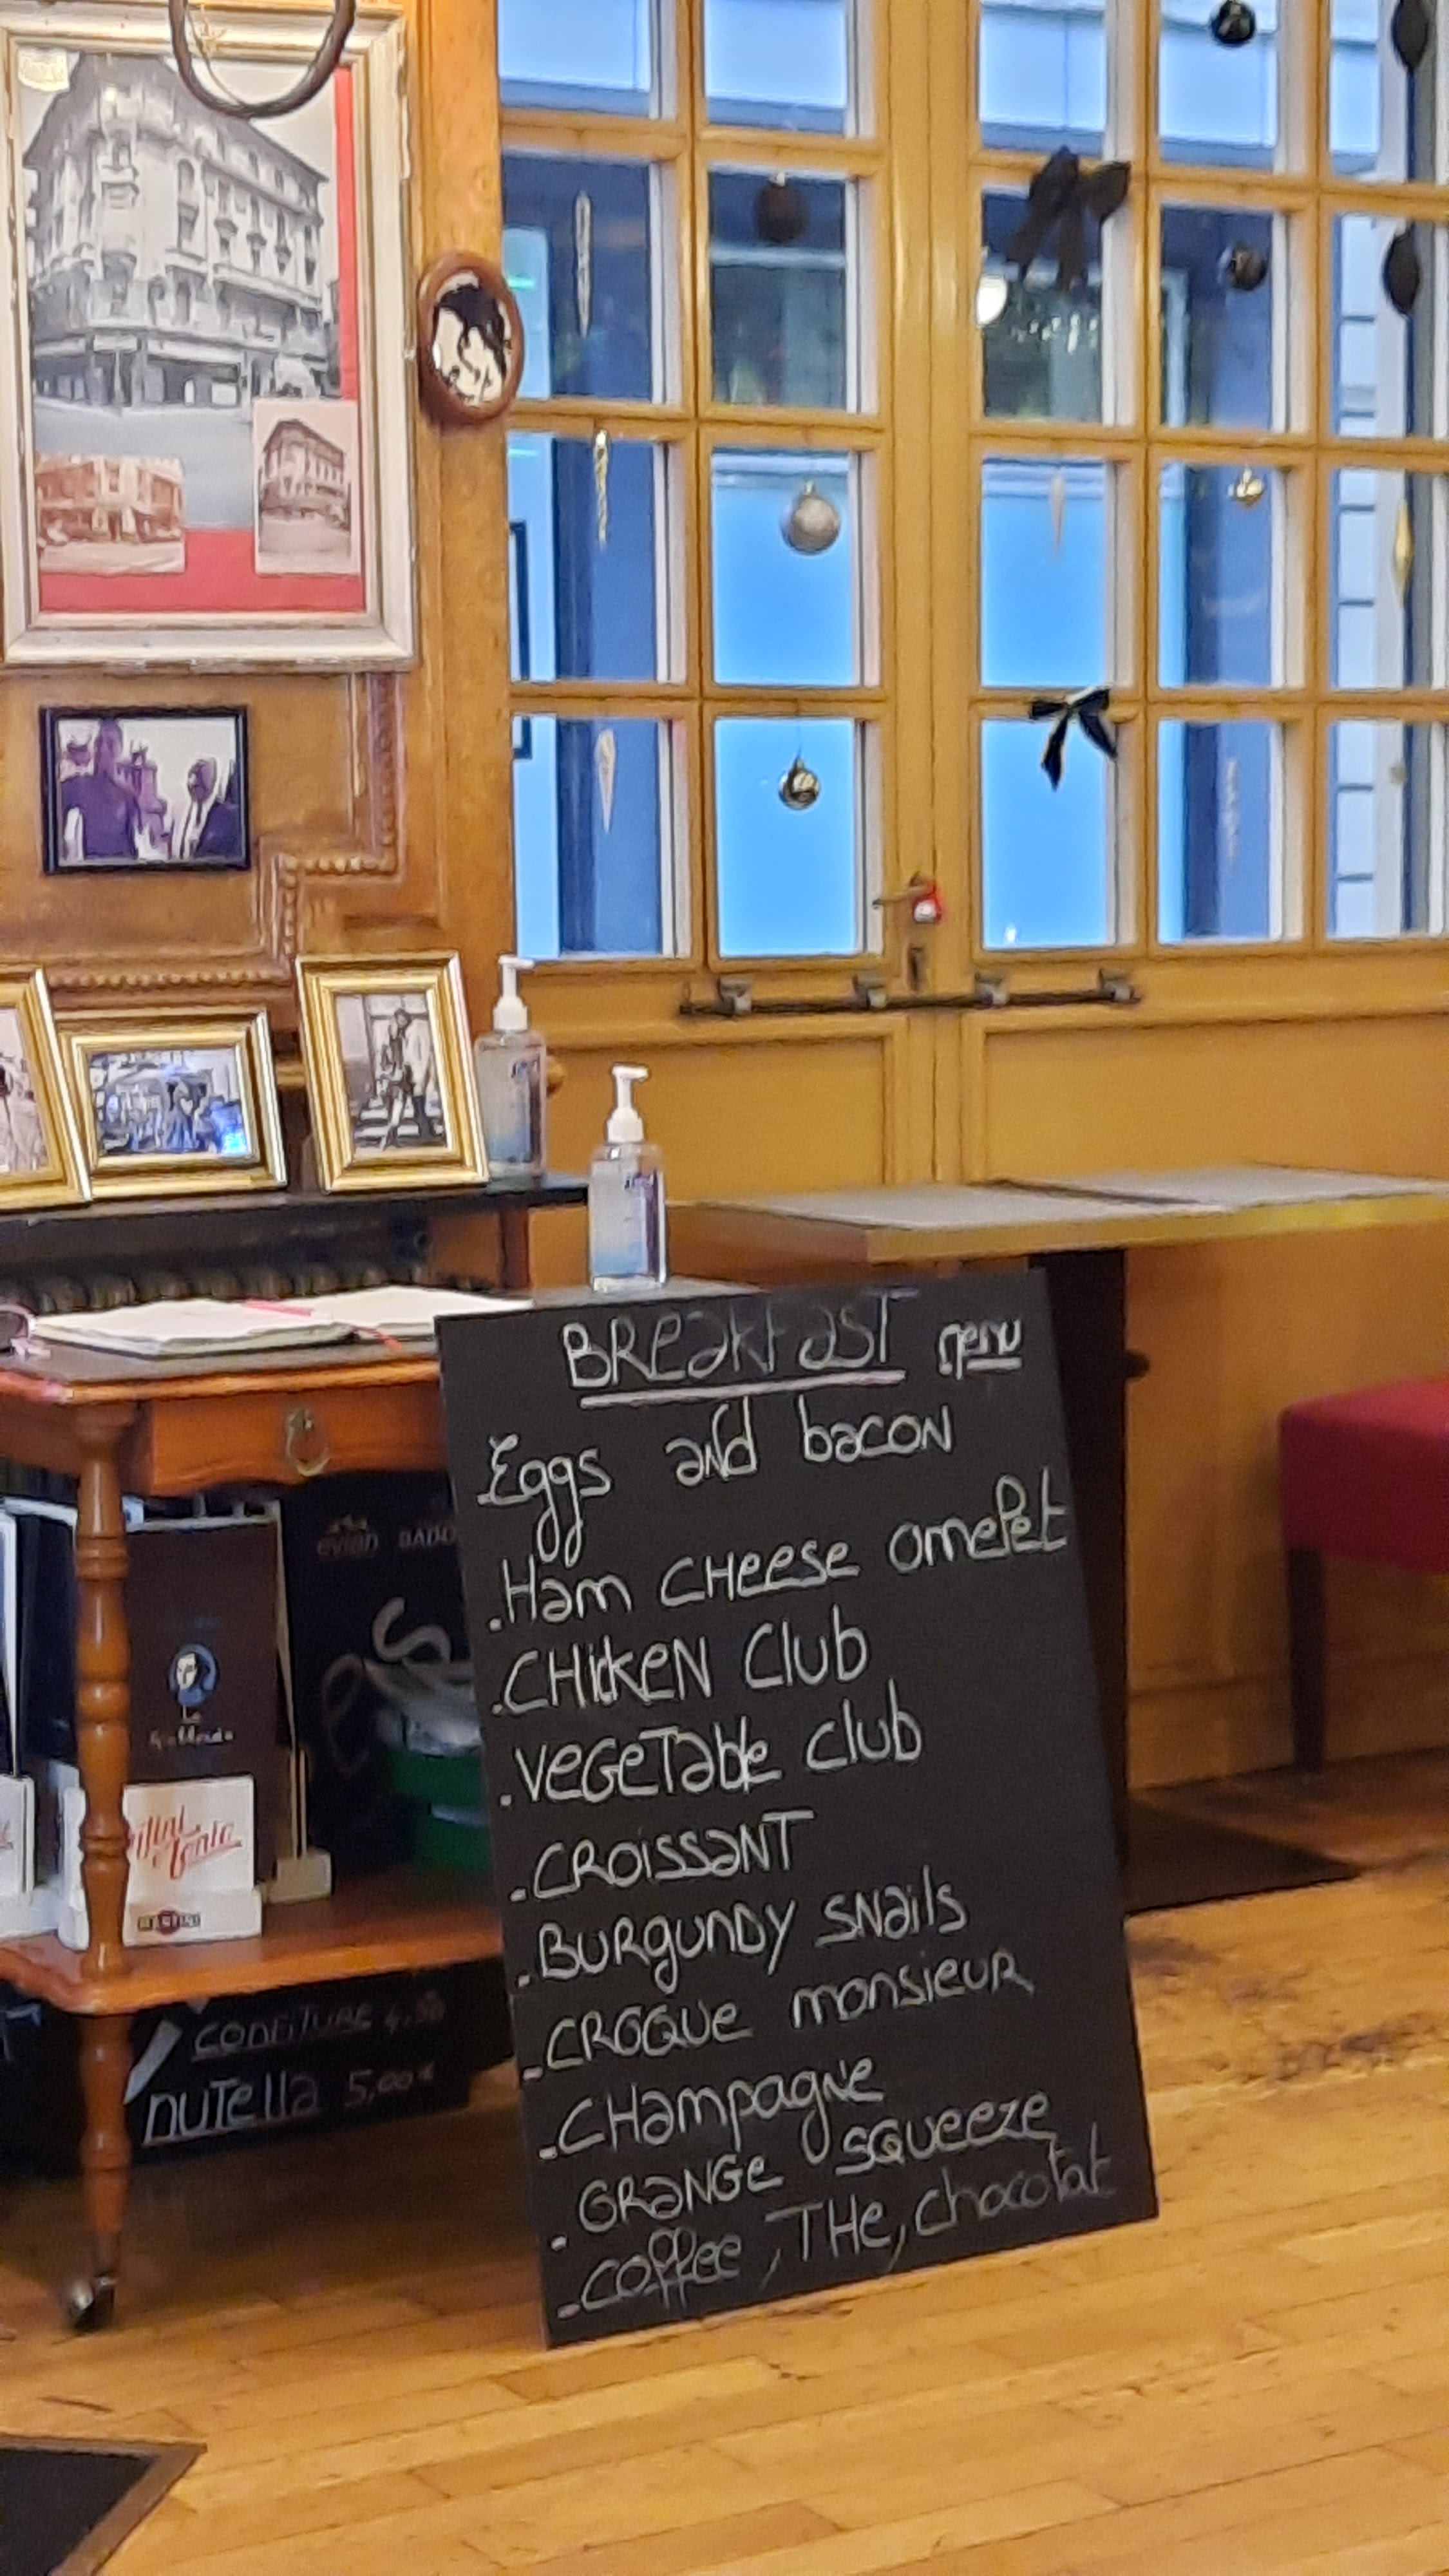 BREakFasT menu
Eggs and bacon
.Ham CHeese omelet
.CHicken Club
.VeGeTable club
.CROissaNT
.BURgUNDY SNails
.CROQUe monsieuR
.CHampagne
.ORaNGe SQUeeze
.coffee, THe, chocolat
evian BADO
Le
CONFiTURe 4,50
NUTella 5,00€